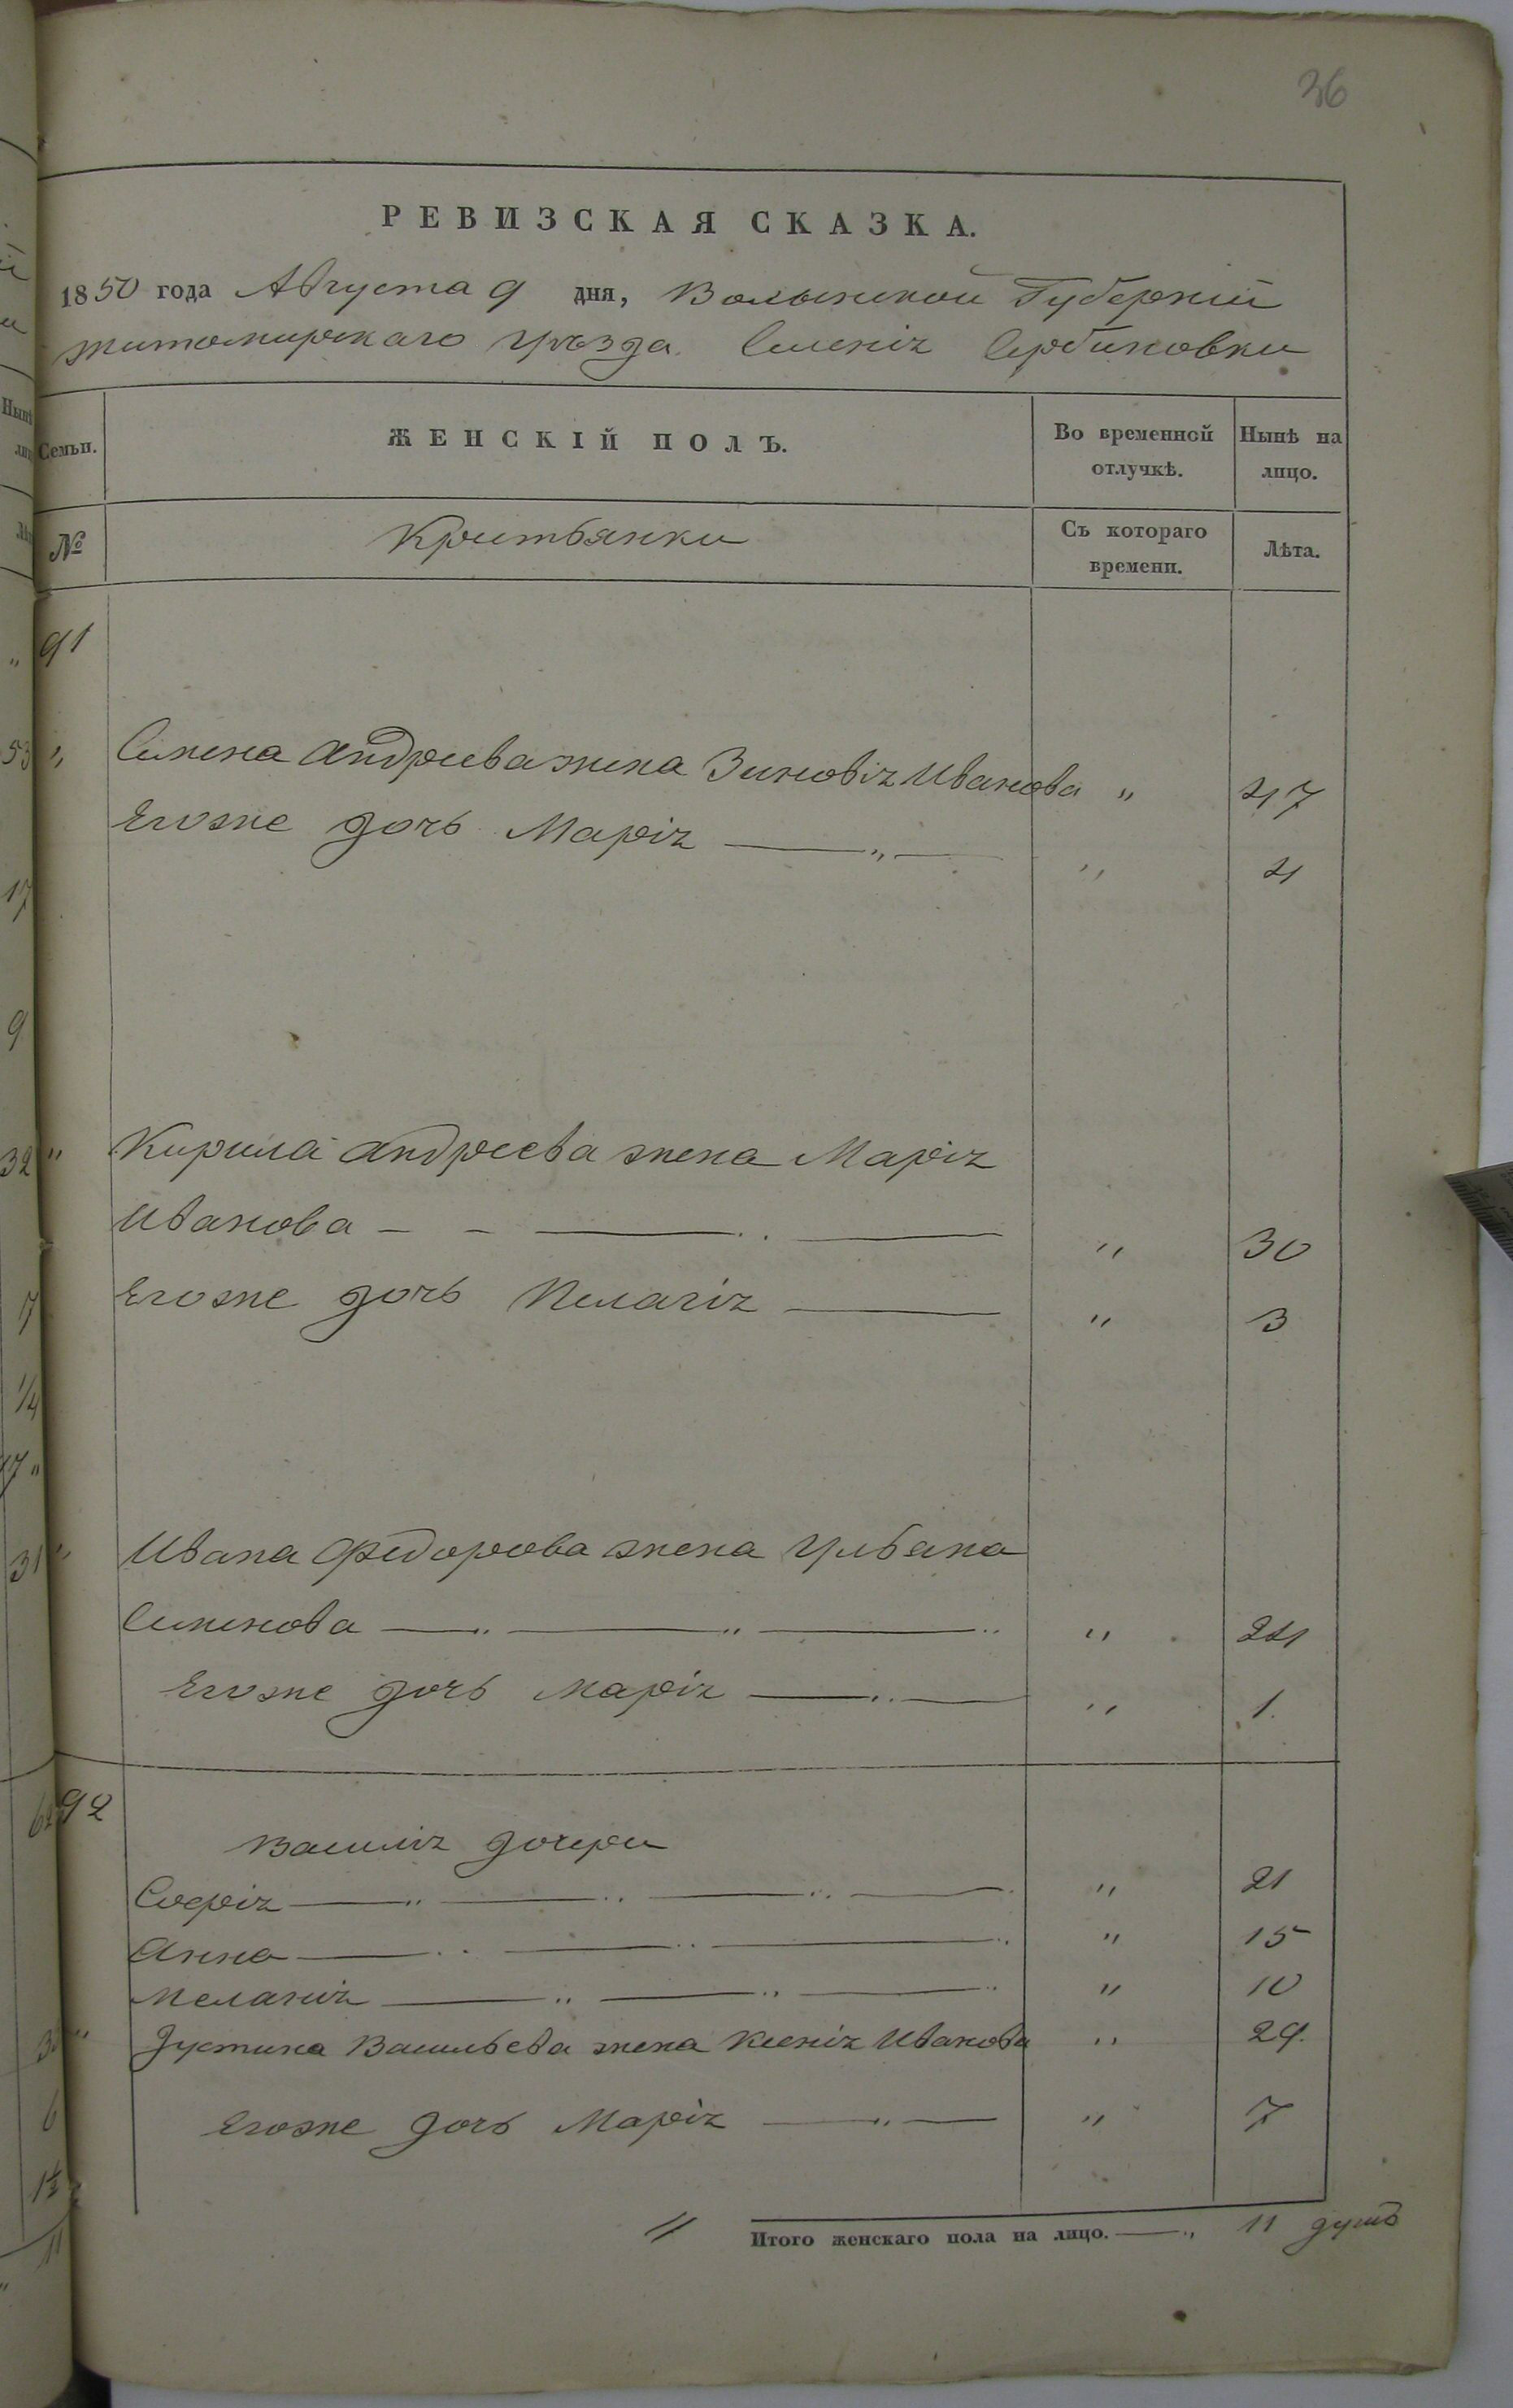 36
РЕВИЗСКАЯ СКАЗКА.
1850 года Августа 9 дня, Волынской Губерніи
Житомирскаго уѣзда. Селенія Сербиновки
Семьи. ЖЕНСКІЙ ПОЛЪ. Во временной отлучкѣ. Нынѣ на лицо.
№ Крестьянки Съ котораго времени. Лѣта.
91
„ Семена Андреева жена Зиновія Иванова „ 47
Егоже дочь Марія — „ — „ 4
„ Кирила Андреева жена Марія
Иванова — „ 30
Егоже дочь Пелагія — „ 3
„ Ивана Федорова жена Ульяна
Семенова — „ — „ — „ „ 24
Егоже дочь Марія — „ — „ 1.
92
Василія дочери
Софія — „ — „ — „ — „ 21
Анна — „ — „ — „ „ 15
Меланія — „ — „ — „ „ 10
„ Густина Васильева жена Ксенія Иванова „ 29.
Егоже дочь Марія — „ — „ 7
Итого женскаго пола на лицо. — „ 11 душъ
53
17
9
32
7
1/4
31
6
11